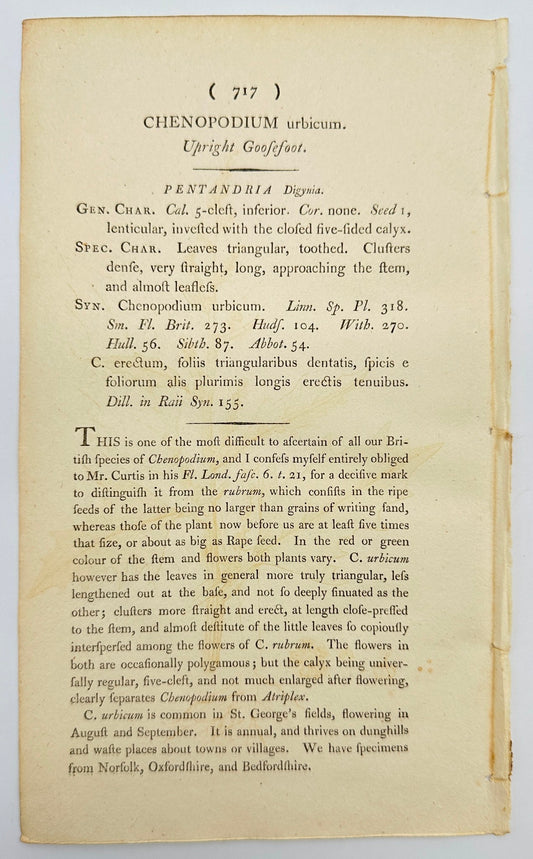 ( 717 )
CHENOPODIUM urbicum.
Upright Gooſefoot.
PENTANDRIA Digynia.
GEN. CHAR. Cal. 5-cleft, inferior. Cor. none. Seed 1,
lenticular, inveſted with the cloſed five-ſided calyx.
SPEC. CHAR. Leaves triangular, toothed. Cluſters
denſe, very ſtraight, long, approaching the ſtem,
and almoſt leafleſs.
SYN. Chenopodium urbicum. Linn. Sp. Pl. 318.
Sm. Fl. Brit. 273. Hudſ. 104. With. 270.
Hull. 56. Sibth. 87. Abbot. 54.
C. erectum, foliis triangularibus dentatis, ſpicis e
foliorum alis plurimis longis erectis tenuibus.
Dill. in Raii Syn. 155.
THIS is one of the moſt difficult to aſcertain of all our Bri-
tiſh ſpecies of Chenopodium, and I confeſs myſelf entirely obliged
to Mr. Curtis in his Fl. Lond. faſc. 6. t. 21, for a deciſive mark
to diſtinguiſh it from the rubrum, which conſiſts in the ripe
ſeeds of the latter being no larger than grains of writing ſand,
whereas thoſe of the plant now before us are at leaſt five times
that ſize, or about as big as Rape ſeed. In the red or green
colour of the ſtem and flowers both plants vary. C. urbicum
however has the leaves in general more truly triangular, leſs
lengthened out at the baſe, and not ſo deeply ſinuated as the
other; cluſters more ſtraight and erect, at length cloſe-preſſed
to the ſtem, and almoſt deſtitute of the little leaves ſo copiouſly
interſperſed among the flowers of C. rubrum. The flowers in
both are occaſionally polygamous; but the calyx being univer-
ſally regular, five-cleft, and not much enlarged after flowering,
clearly ſeparates Chenopodium from Atriplex.
C. urbicum is common in St. George's fields, flowering in
Auguſt and September. It is annual, and thrives on dunghills
and waſte places about towns or villages. We have ſpecimens
from Norfolk, Oxfordſhire, and Bedfordſhire.